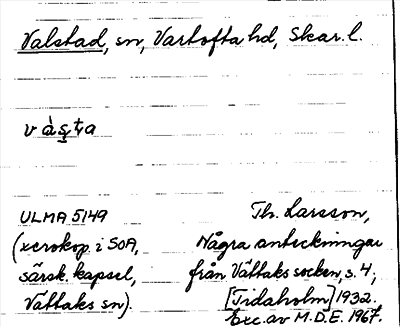 Valstad, sn, Vartofta hd, Skar. l.
ULMA 5149
(xerokop. i SOA,
särsk. kapsel,
Våttaks sn).
Th. Larsson,
Några anteckningar
från Våttaks socken, s. 4,
[Tidaholm] 1932.
Exc. av M.D.E. 1967.